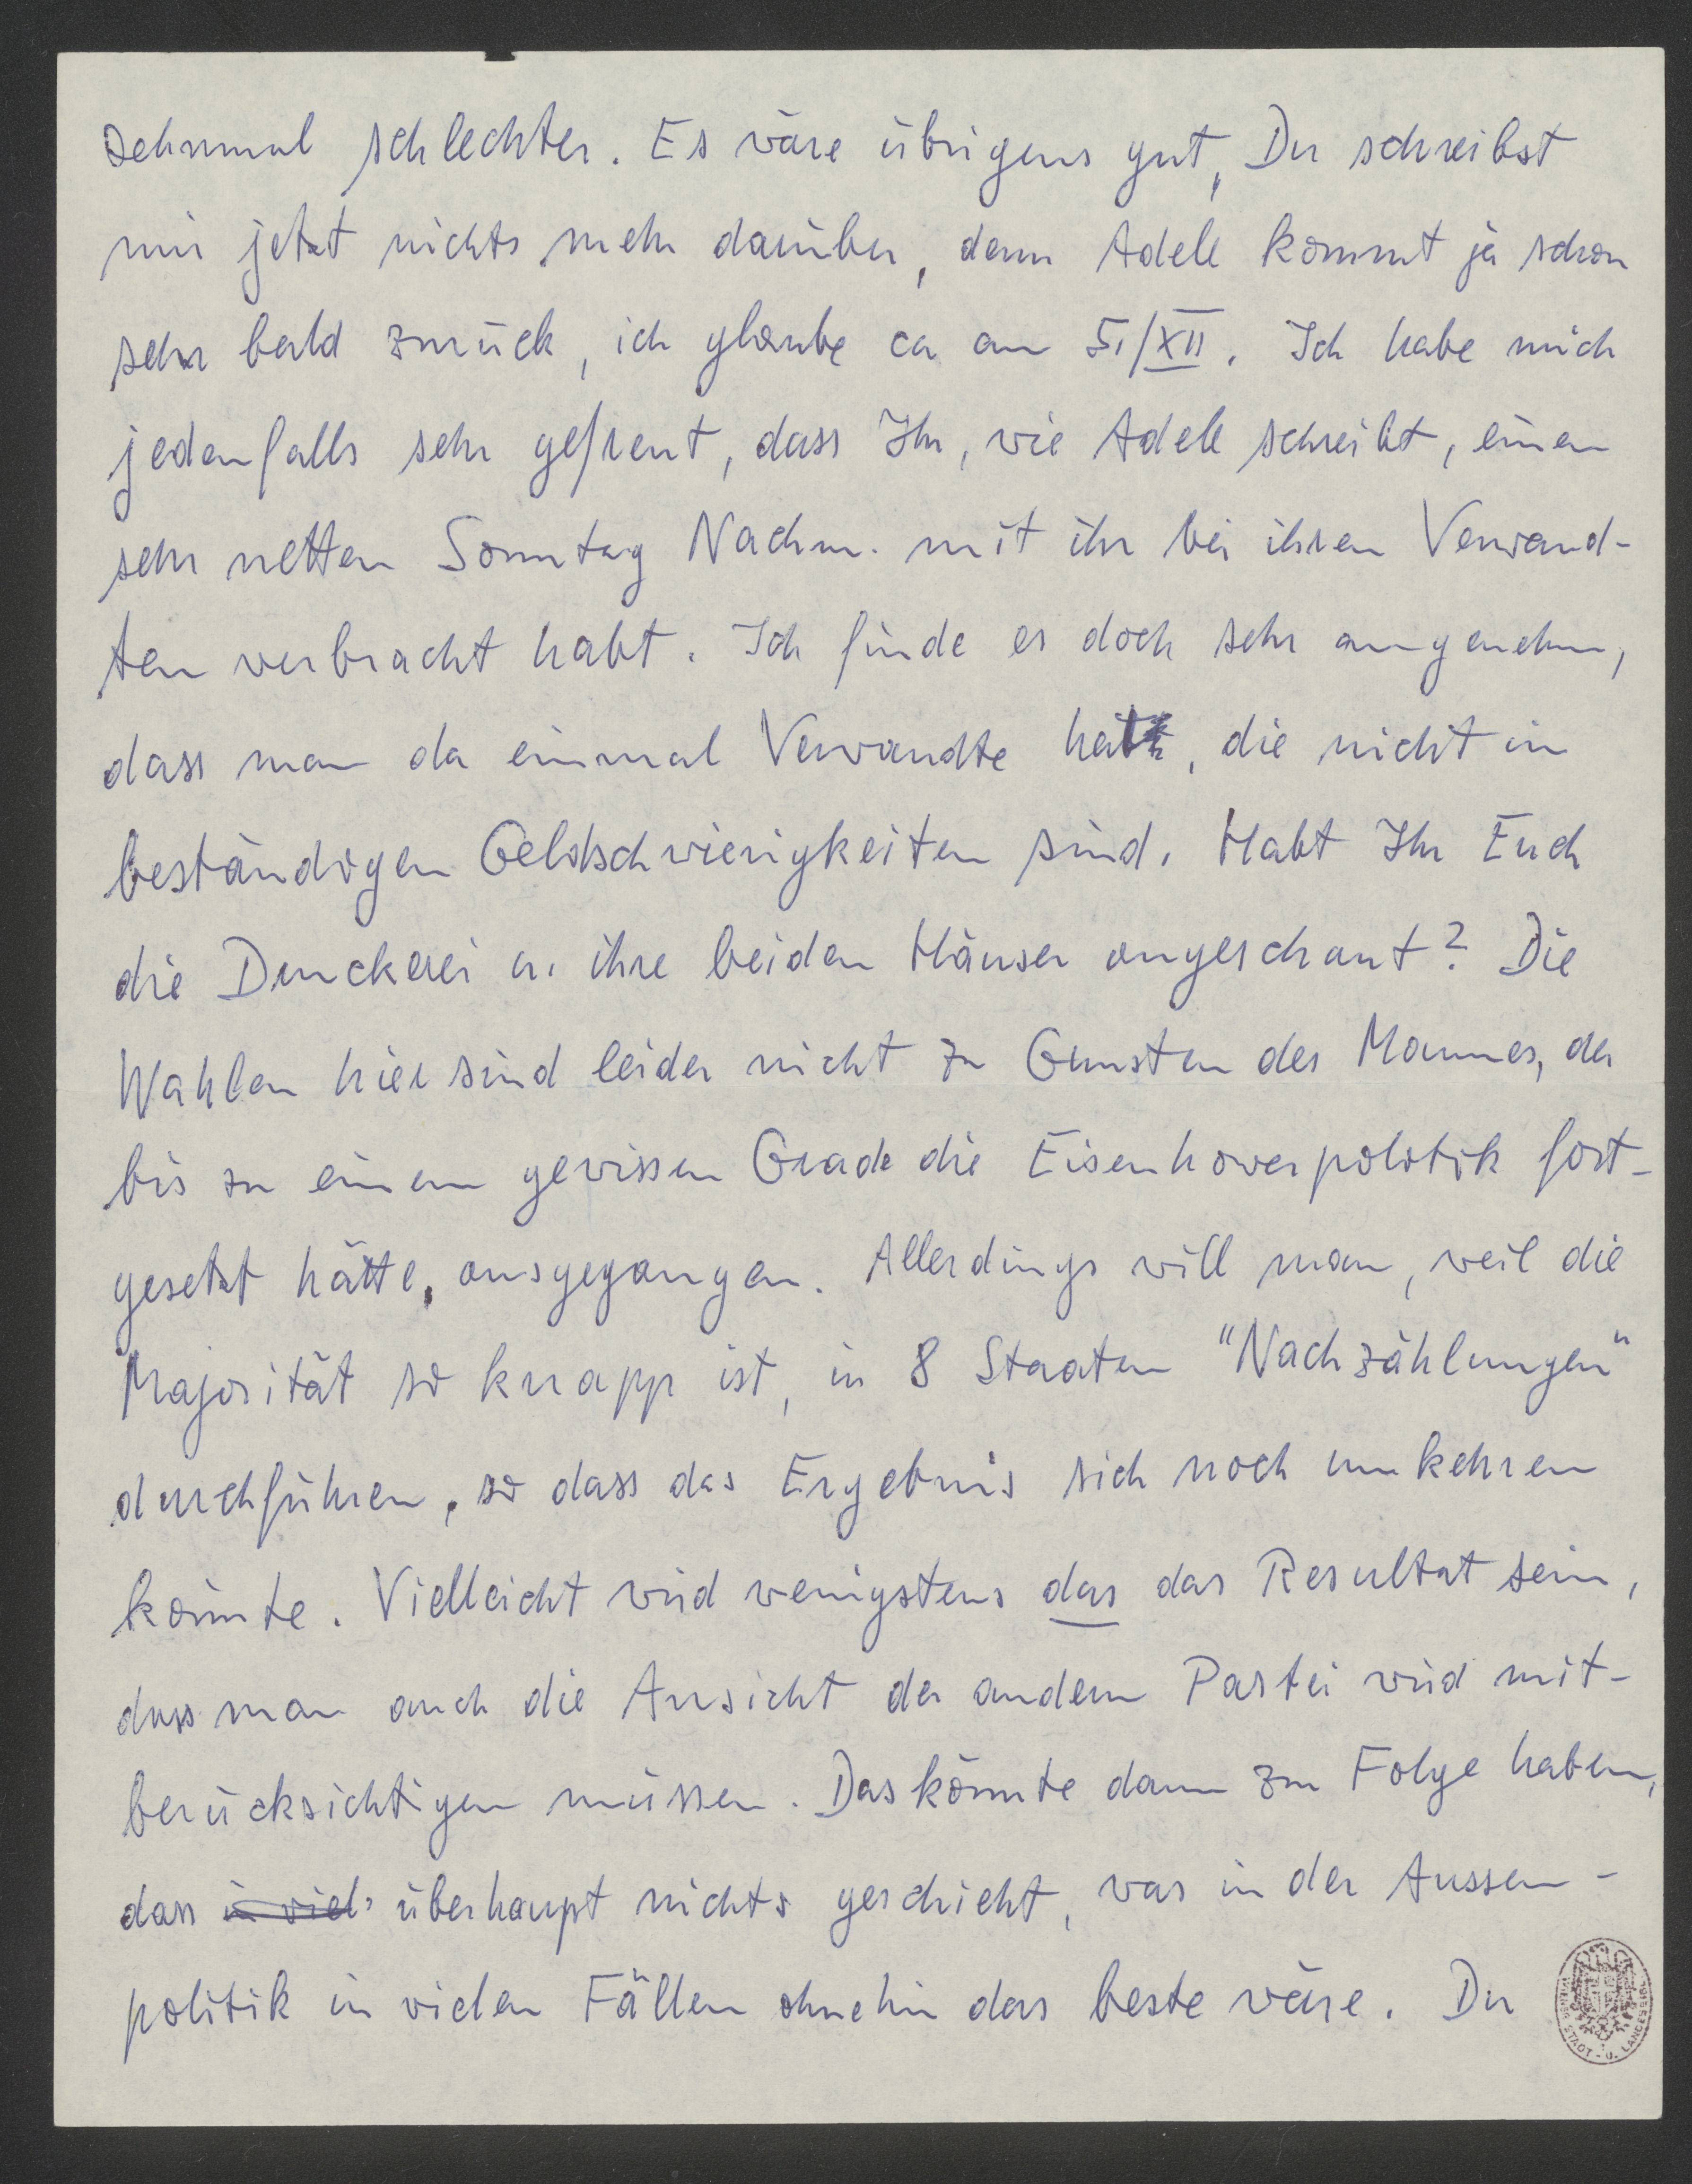 zehnmal schlechter. Es wäre übrigens gut, Du schreibst
mir jetzt nichts mehr darüber, denn Adele kommt ja schon
sehr bald zurück, ich glaube ca am 5./XII. Ich habe mich
jedenfalls sehr gefreut, dass Ihr, wie Adele schreibt, einen
sehr netten Sonntag Nachm. mit ihr bei ihren Verwand-
ten verbracht habt. Ich finde es doch sehr angenehm,
dass man da einmal Verwandte hat, die nicht in
beständigen Geldschwierigkeiten sind. Habt Ihr Euch
die Druckerei u. ihre beiden Häuser angeschaut? Die
Wahlen hier sind leider nicht zu Gunsten des Mannes, der
bis zu einem gewissen Grade die Eisenhowerpolitik fort-
gesetzt hätte, ausgegangen. Allerdings will man, weil die
Majorität so knapp ist, in 8 Staaten "Nachzählungen"
durchführen, so dass das Ergebnis sich noch umkehren
könnte. Vielleicht wird wenigstens das das Resultat sein,
dass man auch die Ansicht der andern Partei wird mit-
berücksichtigen müssen. Das könnte dann zur Folge haben,
dass in viel überhaupt nichts geschieht, was in der Aussen-
politik in vielen Fällen ohnehin das beste wäre. Du
STADT- U. LANDESBIBL.